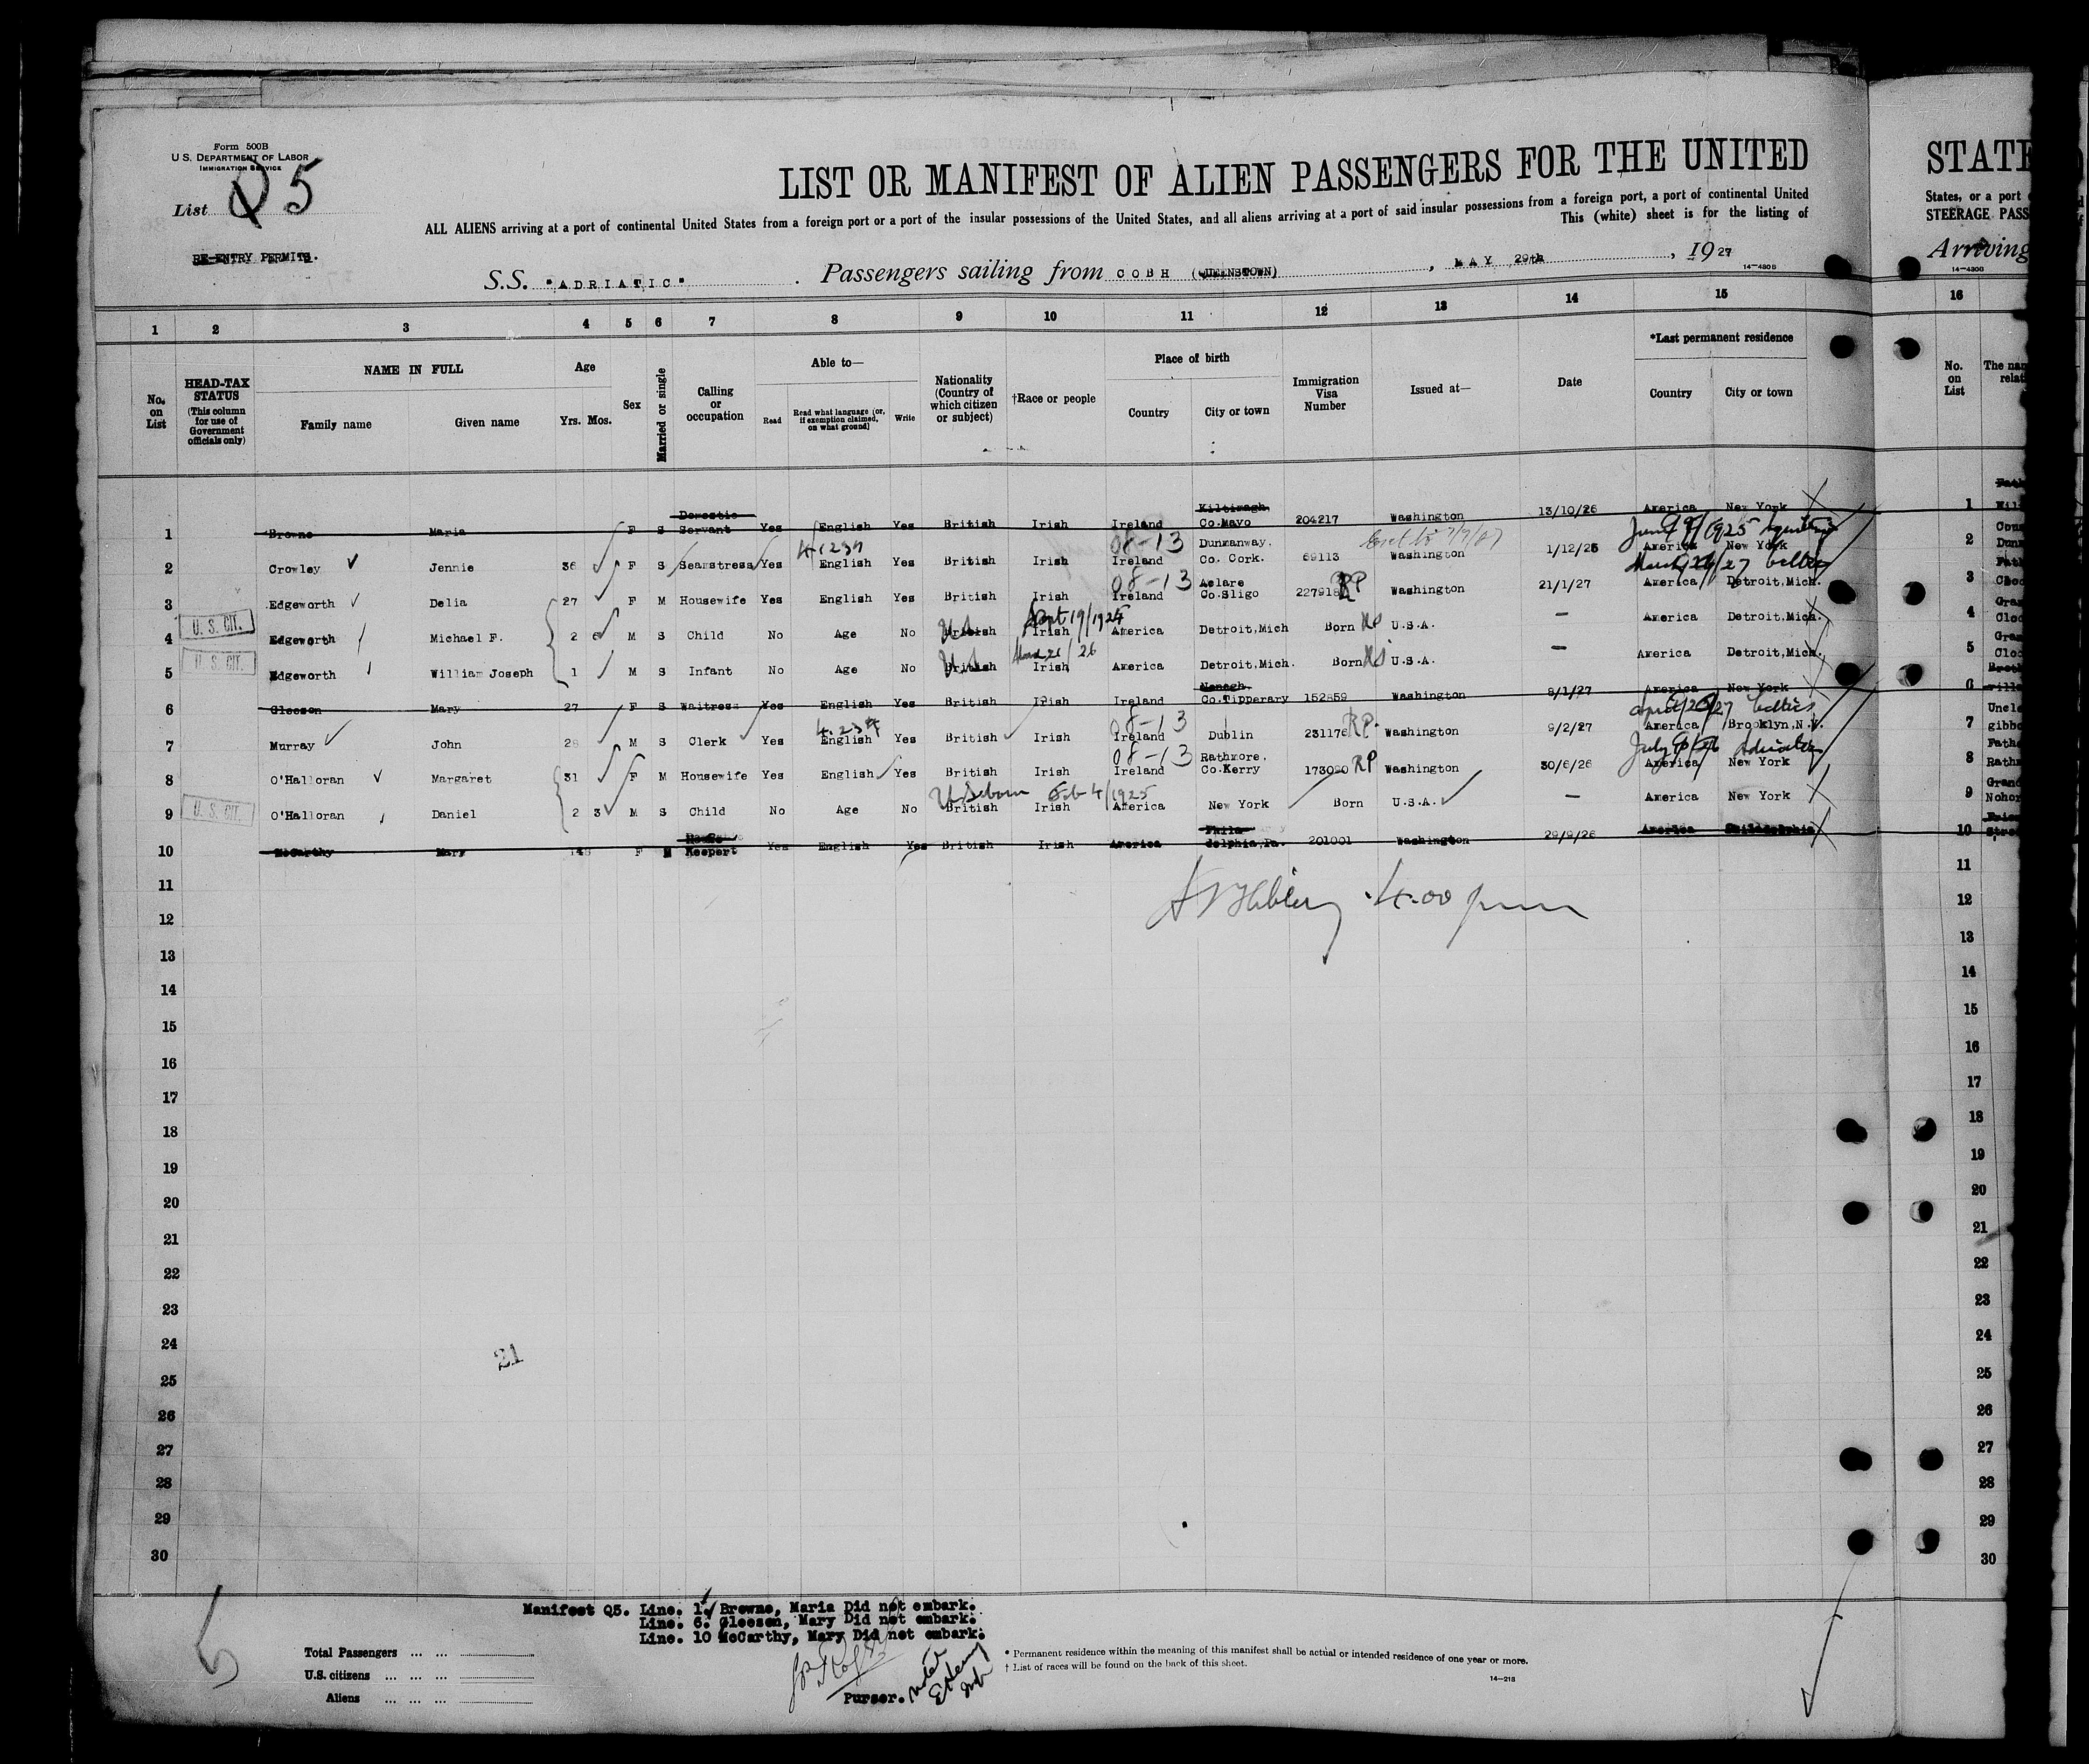 Form 500B
U.S. DEPARTMENT OF LABOR
IMMIGRATION SERVICE
List Q5
RE-ENTRY PERMITS.
LIST OR MANIFEST OF ALIEN PASSENGERS FOR THE UNITED
ALL ALIENS arriving at a port of continental United States from a foreign port or a port of the insular possessions of the United States, and all aliens arriving at a port of said insular possessions from a foreign port, a port of continental United
This (white) sheet is for the listing of
S.S. "ADRIATIC" . Passengers sailing from COBH (QUEENSTOWN) , MAY 29th , 1927
14-4808
STATE
States, or a port
STEERAGE PASS
Arriving
14-4808
1 2 3 4 5 6 7 8 9 10 11 12 13 14 15 16
No. on List
HEAD-TAX STATUS (This column for use of Government officials only)
NAME IN FULL Family name Given name
Age Yrs. Mos.
Sex
Married or single
Calling or occupation
Able to— Read Read what language [or, if exemption claimed, on what ground] Write
Nationality (Country of which citizen or subject)
†Race or people
Place of birth Country City or town
Immigration Visa Number
Issued at—
Date
*Last permanent residence Country City or town
No. on List
The nam
relati
1 Browne Maria F S Domestic Servant Yes English Yes British Irish Ireland Kiltimagh Co.Mayo 204217 Washington 13/10/26 America New York 1
2 Crowley Jennie 36 F S Seamstress Yes English Yes British Irish 08-13 Ireland Dunmanway. Co. Cork. 69113 Washington 1/12/25 America New York 2
3 Edgeworth Delia 27 F M Housewife Yes English Yes British Irish 08-13 Ireland Aclare Co.Sligo RP Washington 21/1/27 America Detroit,Mich. 3
4 U.S. CIT. Edgeworth Michael F. 2 6 M S Child No Age No British Irish America Detroit,Mich Born U.S.A. — America Detroit,Mich. 4
5 U.S. CIT. Edgeworth William Joseph 1 M S Infant No Age No British Irish America Detroit,Mich. Born U.S.A. — America Detroit,Mich. 5
6 Gleeson Mary 27 F S Waitress Yes English Yes British Irish Ireland Nenagh. Co.Tipperary 152859 Washington 8/1/27 America New York 6
7 Murray John 28 M S Clerk Yes English Yes British Irish 08-13 Ireland Dublin 231176 RP. Washington 9/2/27 America Brooklyn,N.Y. 7
8 O'Halloran Margaret 31 F M Housewife Yes English Yes British Irish 08-13 Ireland Rathmore. Co.Kerry 173090 RP Washington 30/6/26 America New York 8
9 U.S. CIT. O'Halloran Daniel 2 3 M S Child No Age No US born British Feb 4/1925 Irish America New York Born U.S.A. — America New York 9
10 McCarthy Mary F M Keepert Yes English Yes British Irish America Philadelphia,Pa. 201001 Washington 29/9/26 America Philadelphia 10
11 11
12 4.00 pm 12
13 13
14 14
15 15
16 16
17 17
18 18
19 19
20 20
21 21
22 22
23 23
24 24
21
25 25
26 26
27 27
28 28
29 29
30 30
Manifest Q5. Line. 1. Browne, Maria Did not embark.
Line. 6. Gleeson, Mary Did not embark.
Line. 10 McCarthy, Mary Did not embark.
Purser.
Total Passengers ... ...
U.S. citizens ... ... ...
Aliens ... ... ...
5
* Permanent residence within the meaning of this manifest shall be actual or intended residence of one year or more.
† List of races will be found on the back of this sheet.
14-218